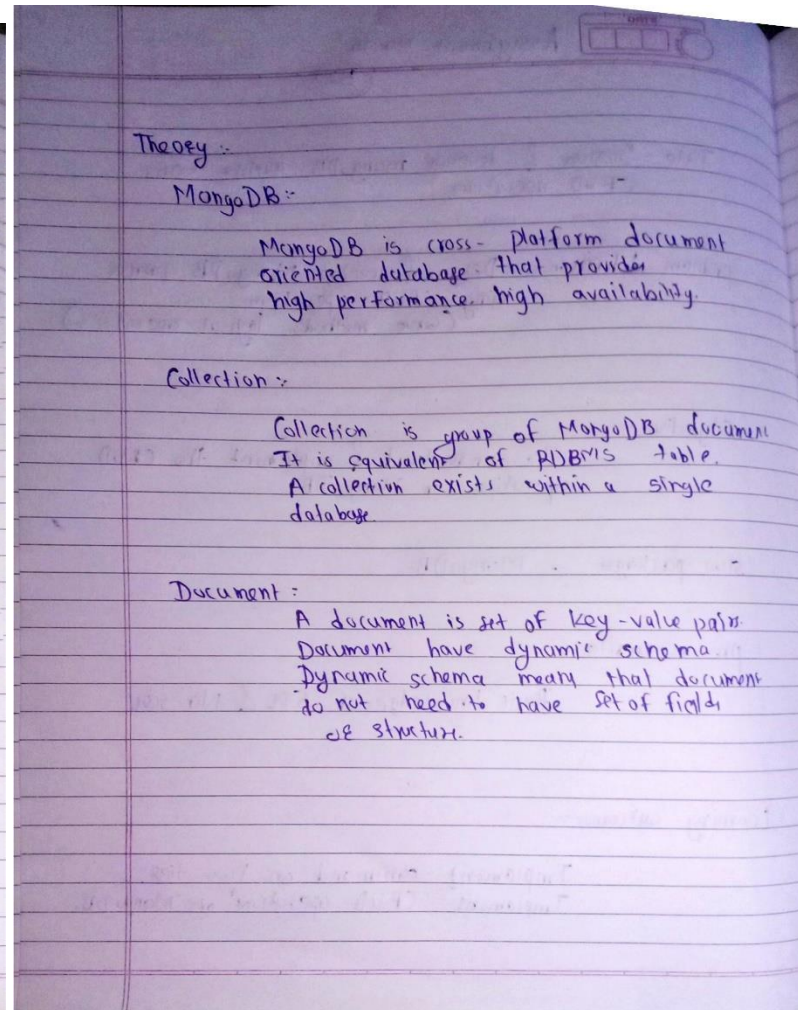 Theory :-
MongoDB :-
MongoDB is cross - platform document
oriented database that provides
high performance. high availability.
Collection :-
Collection is group of MongoDB document
It is equivalent of RDBMS table.
A collection exists within a single
database.
Document :
A document is set of key-value pairs.
Document have dynamic schema
Dynamic schema means that document
do not need to have set of fields
or structure.